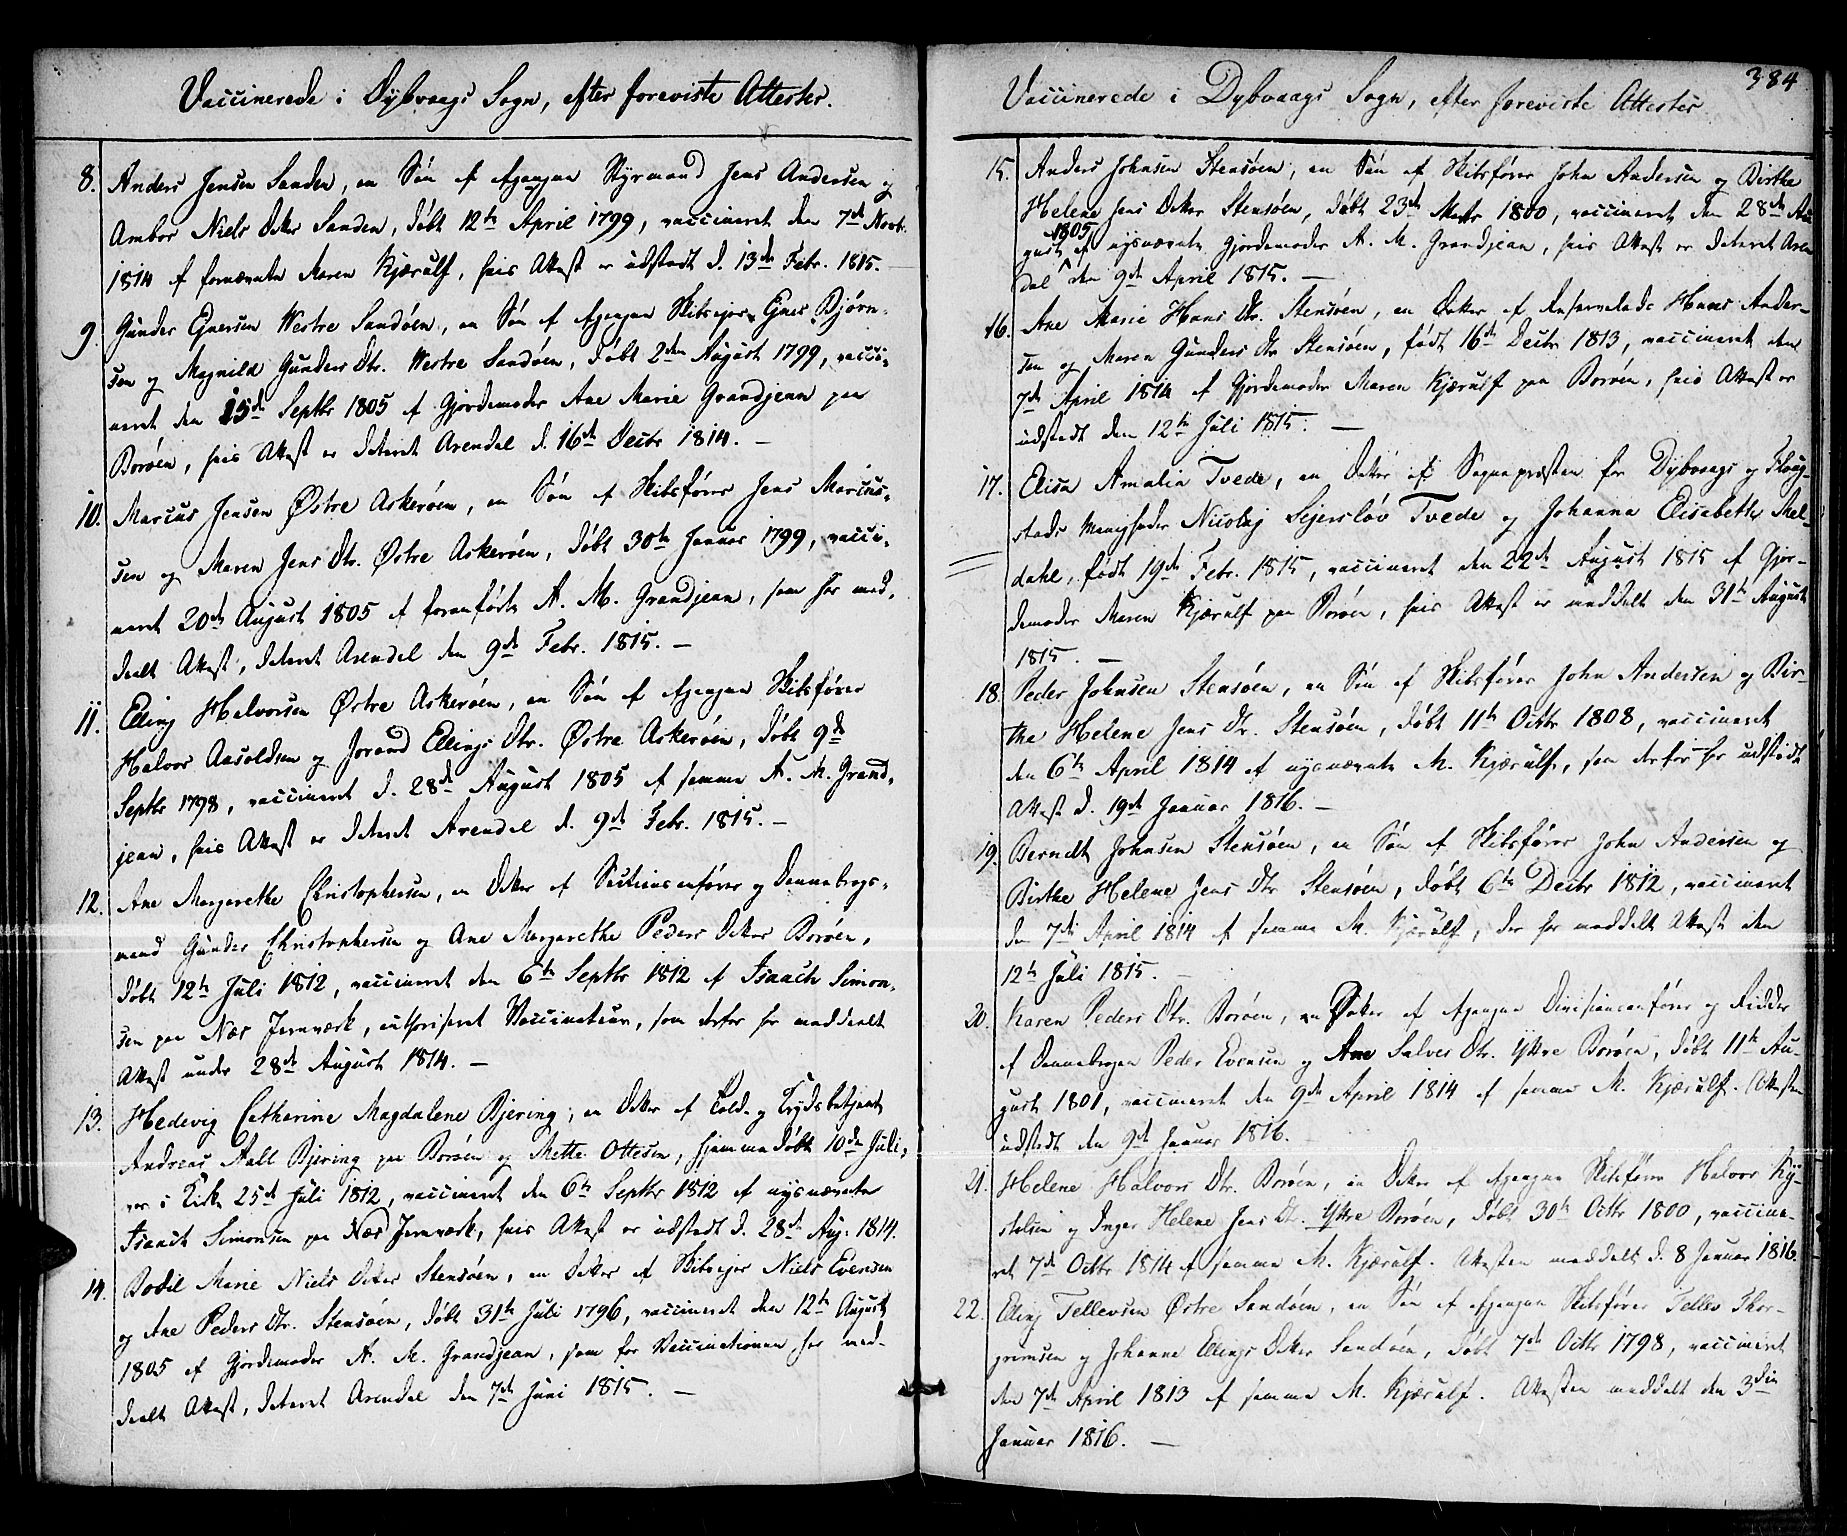 Vaccinerede i Dybvaags Sogn, efter foreviste Attester.
8. Anders Jensen Sanden, en Søn af Afgangne Styrmand Jens Andersen og
Ambor Niels Dtter Sanden, døbt 12te April 1799, vaccineret den 7de Novbr.
1814 af fornævnte Maren Kjærulf, hvis Attest er udstedt d. 13de Febr. 1815. —
9. Gunder Gjnersen Westre Sandøen, en Søn af Afgangne Skibsejer Gjner Bjørn-
sen og Magnild Gunders Dtr. Westre Sandøen, døbt 2den August 1799, vacci-
neret den 15de Septbr 1805 af Gjordemoder Ane Marie Grandjean paa
Borøen, hvis Attest er dateret Arendal d. 16de Decbr 1814. —
10. Marcus Jensen Østre Askerøen, en Søn af Skibsfører Jens Marcus-
sen og Maren Jens Dtr. Østre Askerøen, døbt 30te Januar 1799, vacci-
neret 20de August 1805 af foranførte A. M. Grandjean, som har med-
deelt Attest, dateret Arendal den 9de Febr. 1815. —
11. Elling Halvorsen Østre Askerøen, en Søn af Afgangne Skibsfører
Halvor Aasoldsen og Jorand Ellings Dtr. Østre Askerøen, døbt 9de
Septbr 1798, vaccineret d. 28de August 1805 af samme A. M. Grand-
jean, hvis Attest er dateret Arendal d. 9de Febr. 1815. —
12. Ane Margarethe Christophersen, en Datter af Sectionsanfører og Dannebrogs-
mand Gunder Christophersen og Ane Margarethe Peders Datter Borøen,
døbt 12te Juli 1812, vaccineret den 6te Septbr 1812 af Isaach Simon-
sen paa Næs Jernværk, authoriseret Vaccinateur, som derfor har meddeelt
Attest under 28de August 1814. —
13. Hedevig Catharine Magdalene Bjering, en Datter af Told- og Krydsbetjent
Andreas Aall Bjering paa Borøen og Mette Ottesen, hjemmedøbt 10de Juli,
var i Kirke 25de Juli 1812, vaccineret den 6te Septbr 1812 af nysnævnte
Isaach Simonsen paa Næs Jernværk, hvis Attest er udstedt d. 28de Aug. 1814.
14. Bodil Marie Niels Datter Stensøen, en Datter af Skibsejer Niels Evensen
og Ane Peders Dtr. Stensøen, døbt 31te Juli 1796, vaccineret den 12te August
1805 af Gjordemoder A. M. Grandjean, som for Vaccinationen har med-
deelt Attest, dateret Arendal den 7de Juni 1815. —
384
Vaccinerede i Dybvaags Sogn, efter foreviste Attester.
15. Anders Johnsen Stensøen, en Søn af Skibsfører John Andersen og Birthe
Helene Jens Datter Stensøen, døbt 23de 1800, vaccineret den 28de Au-
gust 1805 af nysnævnte Gjordemoder A. M. Grandjean, hvis Attest er dateret Aren-
dal den 9de April 1815. —
16. Ane Marie Hans Dtr. Stensøen, en Datter af Hans Ander-
sen og Maren Gunders Dtr Stensøen, født 16de Decbr 1813, vaccineret den
7de April 1814 af Gjordemoder Maren Kjærulf paa Borøen, hvis Attest er
udstedt den 12te Juli 1815. —
17. Elisa Amalia Tvede, en Datter af Sognepræsten for Dybvaags og Flaug-
stads Menigheder Nicolaj Sejersløv Tvede og Johanna Elisabetha Mel-
dahl, født 19de Febr. 1815, vaccineret den 22de August 1815 af Gjor-
demoder Maren Kjærulf paa Borøen, hvis Attest er meddelt den 31te August
1815. —
18. Peder Johnsen Stensøen, en Søn af Skibsfører John Andersen og Bir-
the Helene Jens Dtr. Stensøen, døbt 11te Octbr 1808, vaccineret
den 6te April 1814 af nysnævnte M. Kjærulf, som derfor har udstedt
Attest d. 19de Januar 1816. —
19. Berndt Johnsen Stensøen, en Søn af Skibsfører John Andersen og
Birthe Helene Jens Dtr Stensøen, døbt 6te Decbr 1812, vaccineret
den 7de April 1814 af samme M. Kjærulf, der har meddelt Attest den
12te Juli 1815. —
20. Karen Peders Dtr. Borøen, en Datter af Afgangne Divisionsanfører og Ridder
af Dannebrogen Peder Evensen og Ane Salves Dtr. Yttre Borøen, døbt 11te Au-
gust 1801, vaccineret den 9de April 1814 af samme M. Kjærulf. Attesten
udstedt den 9de Januar 1816. —
21. Helene Halvors Dtr. Borøen, en Datter af Afgangne Skibsfører Halvor Ky-
stelsen og Inger Helene Jens Dtr. Yttre Borøen, døbt 30te Octbr 1800, vaccine-
ret 7de Octbr 1814 af samme M. Kjærulf. Attesten meddelt d. 8 Januar 1816.
22. Elling Tellevsen Østre Sandøen, en Søn af Afgangne Skibsfører Tellev Thor-
grimsen og Johanne Ellings Datter Sandøen, døbt 7de Octbr 1798, vaccineret
den 7de April 1813 af samme M. Kjærulf. Attesten meddelt den 3die
Januar 1816. —